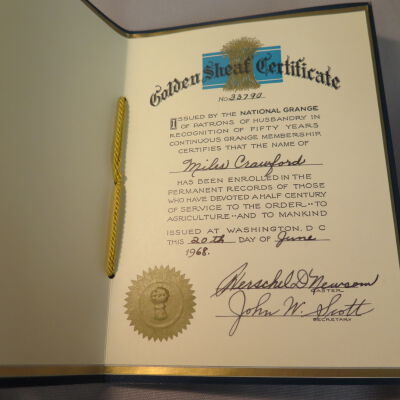 Golden Sheaf Certificate
No. 33790
ISSUED BY THE NATIONAL GRANGE
OF PATRONS OF HUSBANDRY IN
RECOGNITION OF FIFTY YEARS
CONTINUOUS GRANGE MEMBERSHIP
CERTIFIES THAT THE NAME OF
Miles Crawford
HAS BEEN ENROLLED IN THE
PERMANENT RECORDS OF THOSE
WHO HAVE DEVOTED A HALF CENTURY
OF SERVICE TO THE ORDER--TO
AGRICULTURE--AND TO MANKIND
ISSUED AT WASHINGTON, D C
THIS 20th DAY OF June
1968.
Herschel D Newsom
MASTER
John W. Scott
SECRETARY